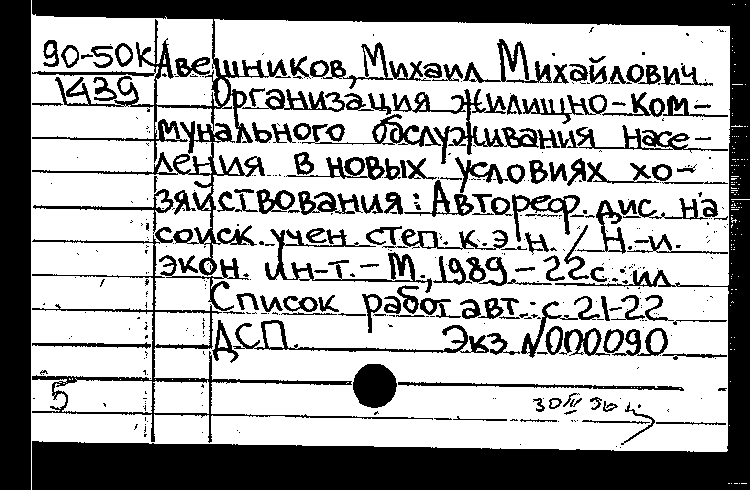 90-50К Авешников, Михаил Михайлович
1439 Организация жилищно-ком-
мунального обслуживания насе-
ления в новых условиях хо-
зяйствования: Автореф. дис. на
соиск. учен. степ. к. э. н. / Н.-и.
экон. ин-т. - М., 1989. - 22 с.: ил.
Список работ авт.: с. 21-22.
ДСП. Экз. N000090.
5
30 III 90